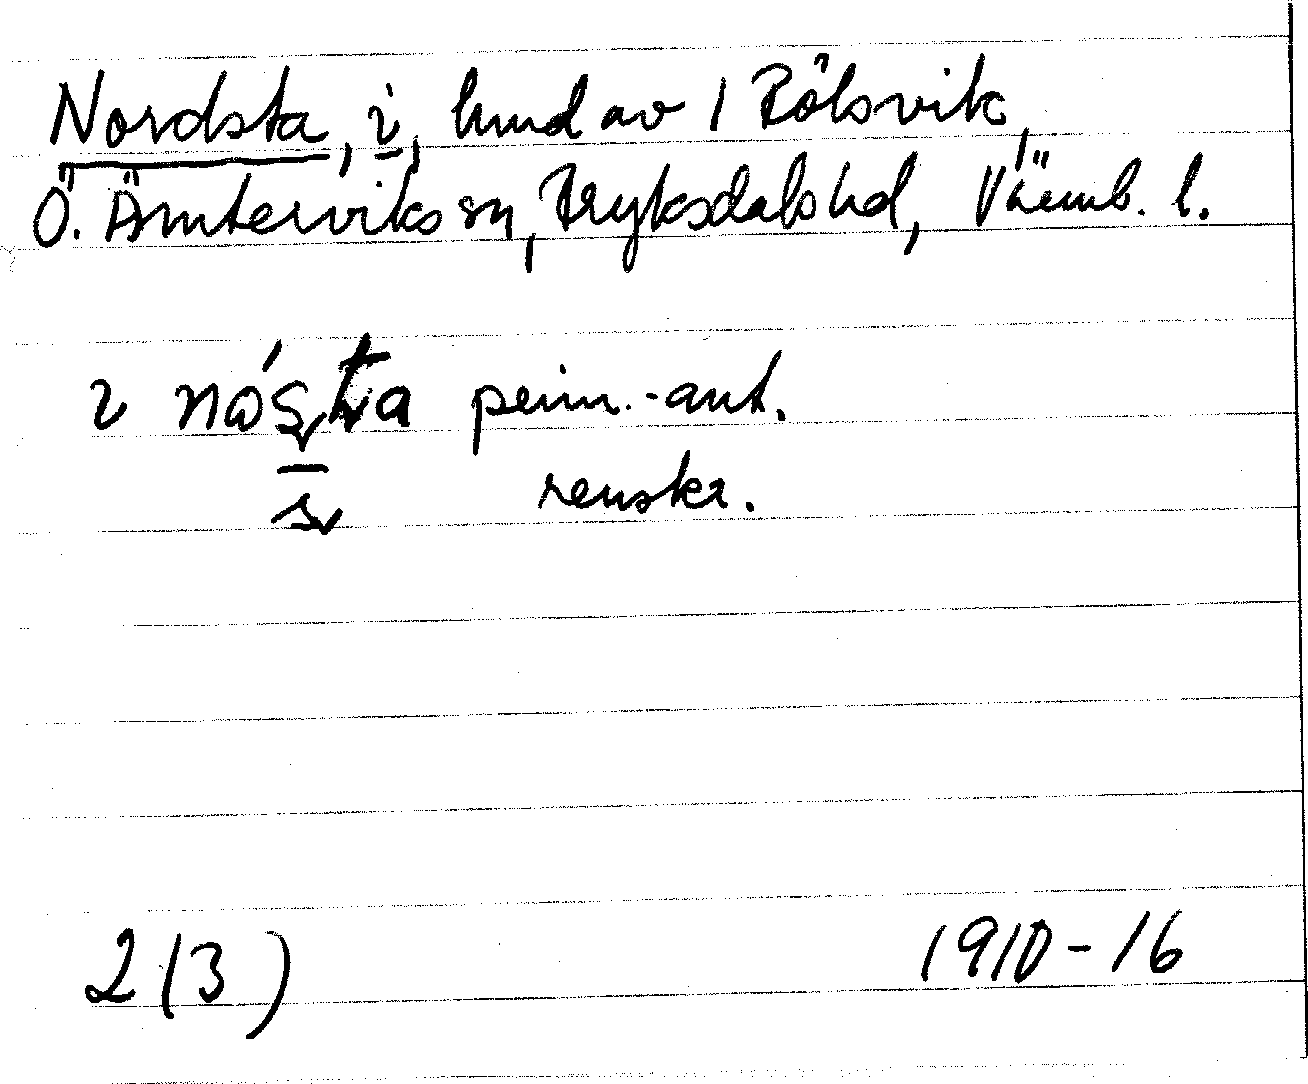 Nordsta, i, hmd av 1 Rölsvik,
Ö. Ämterviks sn, Fryksdals hd, Värml. l.
ı nǻs̨ta prim.-ant.
s renskr.
2 (3) 1910-16